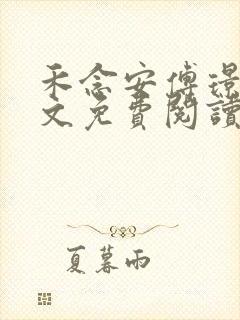 禾念安傅璟
文免費閱讀
夏暮雨